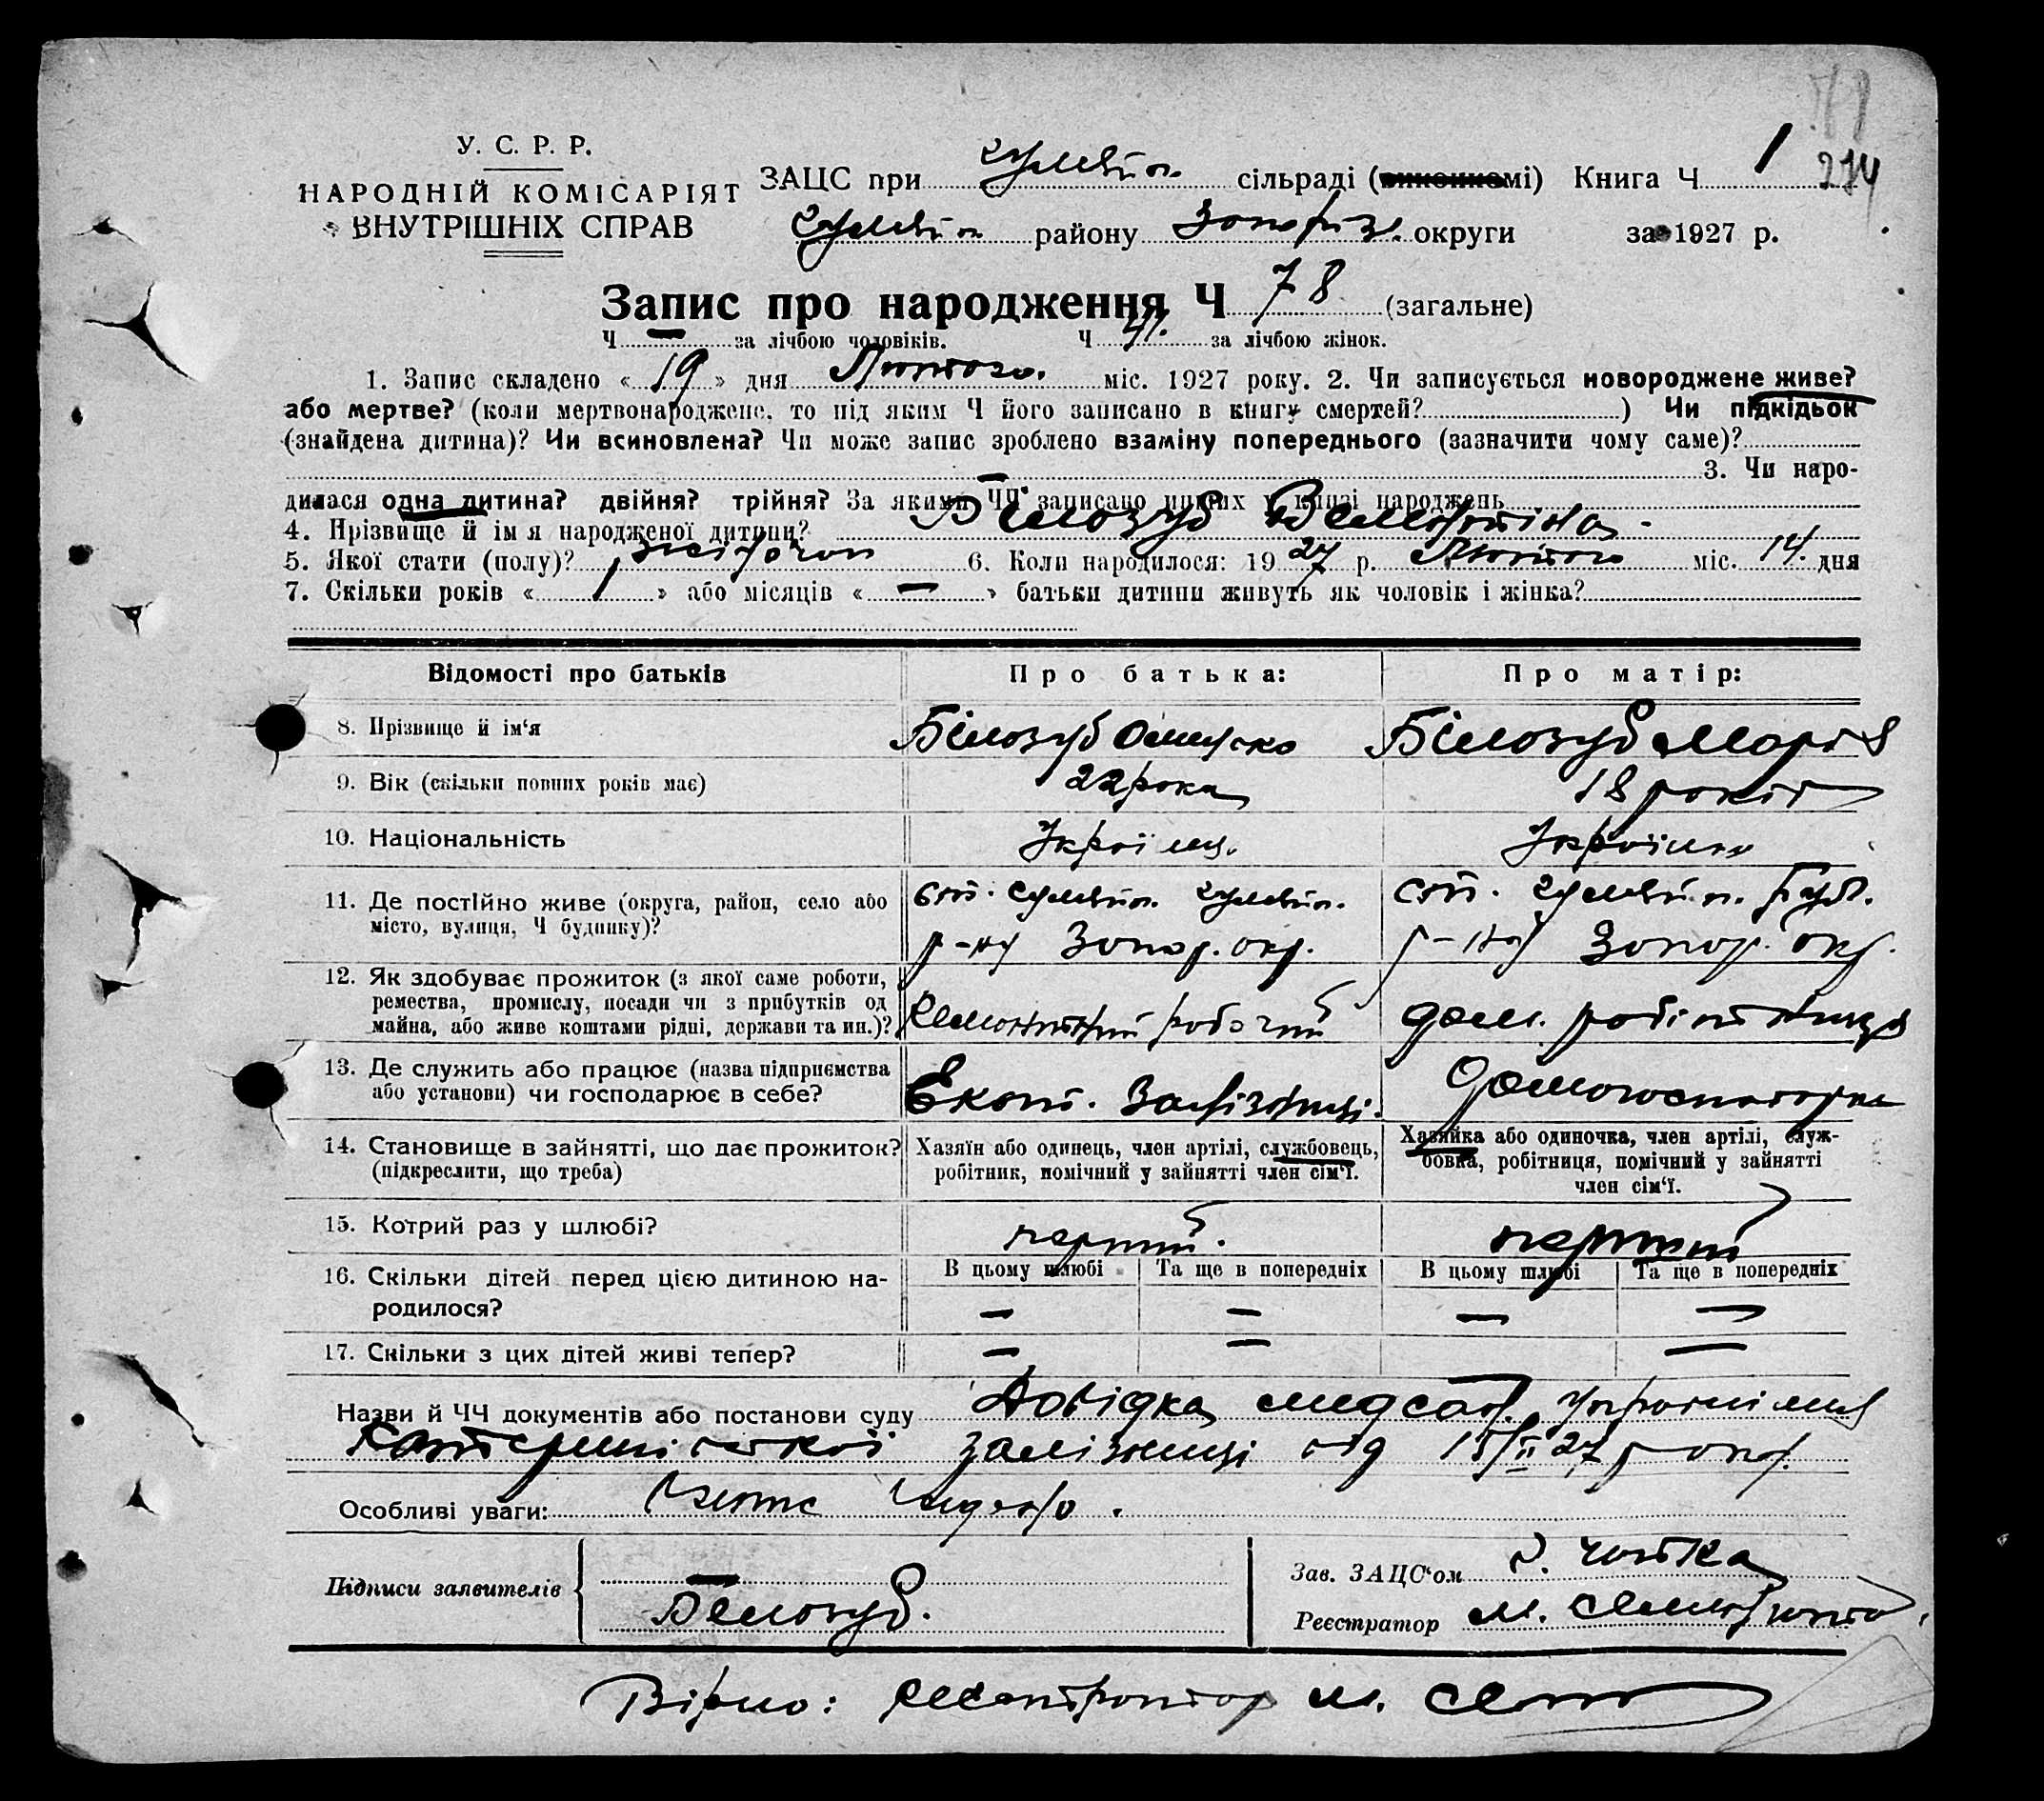 У. С. Р. Р.
НАРОДНІЙ КОМІСАРІЯТ
ВНУТРІШНІХ СПРАВ
ЗАЦС при сільраді (виконкомі) Книга Ч 1 274
району Запоріз. округи за 1927 р.
Запис про народження Ч 78 (загальне)
Ч — за лічбою чоловіків. Ч 41. за лічбою жінок.
1. Запис складено « 19 » дня Лютого. міс. 1927 року. 2. Чи записується новороджене живе?
або мертве? (коли мертвонароджене, то під яким Ч його записано в книгу смертей? ) Чи підкідьок
(знайдена дитина)? Чи всиновлена? Чи може запис зроблено взаміну попереднього (зазначити чому саме)?
— 3. Чи наро-
дилася одна дитина? двійня? трійня? За якими ЧЧ записано инших у книзі народжень
4. Прізвище й ім я народженої дитини? Білозуб Валентіна.
5. Якої стати (полу)? жіночої 6. Коли народилося: 1927 р. Лютого міс. 14. дня
7. Скільки років « 1 » або місяців « — » батьки дитини живуть як чоловік і жінка?
Відомості про батьків Про батька: Про матір:
8. Прізвище й ім‘я Білозуб Білозуб Марія
9. Вік (скільки повних років має) 22 рока 18 років
10. Національність Украінц. Украінка
11. Де постійно живе (округа, район, село або ст. ст.
місто, вулиця, Ч будинку)? р-ну Запор. окр. р-ну Запор. окр.
12. Як здобуває прожиток (з якої саме роботи,
ремества, промислу, посади чи з прибутків од
майна, або живе коштами рідні, держави та ин.)? Ремонтний робочий дом. робітниця
13. Де служить або працює (назва підприємства
або установи) чи господарює в себе? Екат. Залізниці. Домогосподарка
14. Становище в зайнятті, що дає прожиток? Хазяїн або одинець, член артілі, службовець, Хазяйка або одиночка, член артілі, служ-
(підкреслити, що треба) робітник, помічний у зайнятті член сім‘ї. бовка, робітниця, помічний у зайнятті
член сім‘ї.
15. Котрий раз у шлюбі? перший. перший
16. Скільки дітей перед цією дитиною на- В цьому шлюбі Та ще в попередніх В цьому шлюбі Та ще в попередніх
родилося? — — — —
17. Скільки з цих дітей живі тепер? — — —
Назви й ЧЧ документів або постанови суду Довідка
залізниці від 15/II 27 року.
Особливі уваги:
Підписи заявителів —
Білозуб.
Зав. ЗАЦС‘ом
Реєстратор М.
Вірно: Реєстратор М.